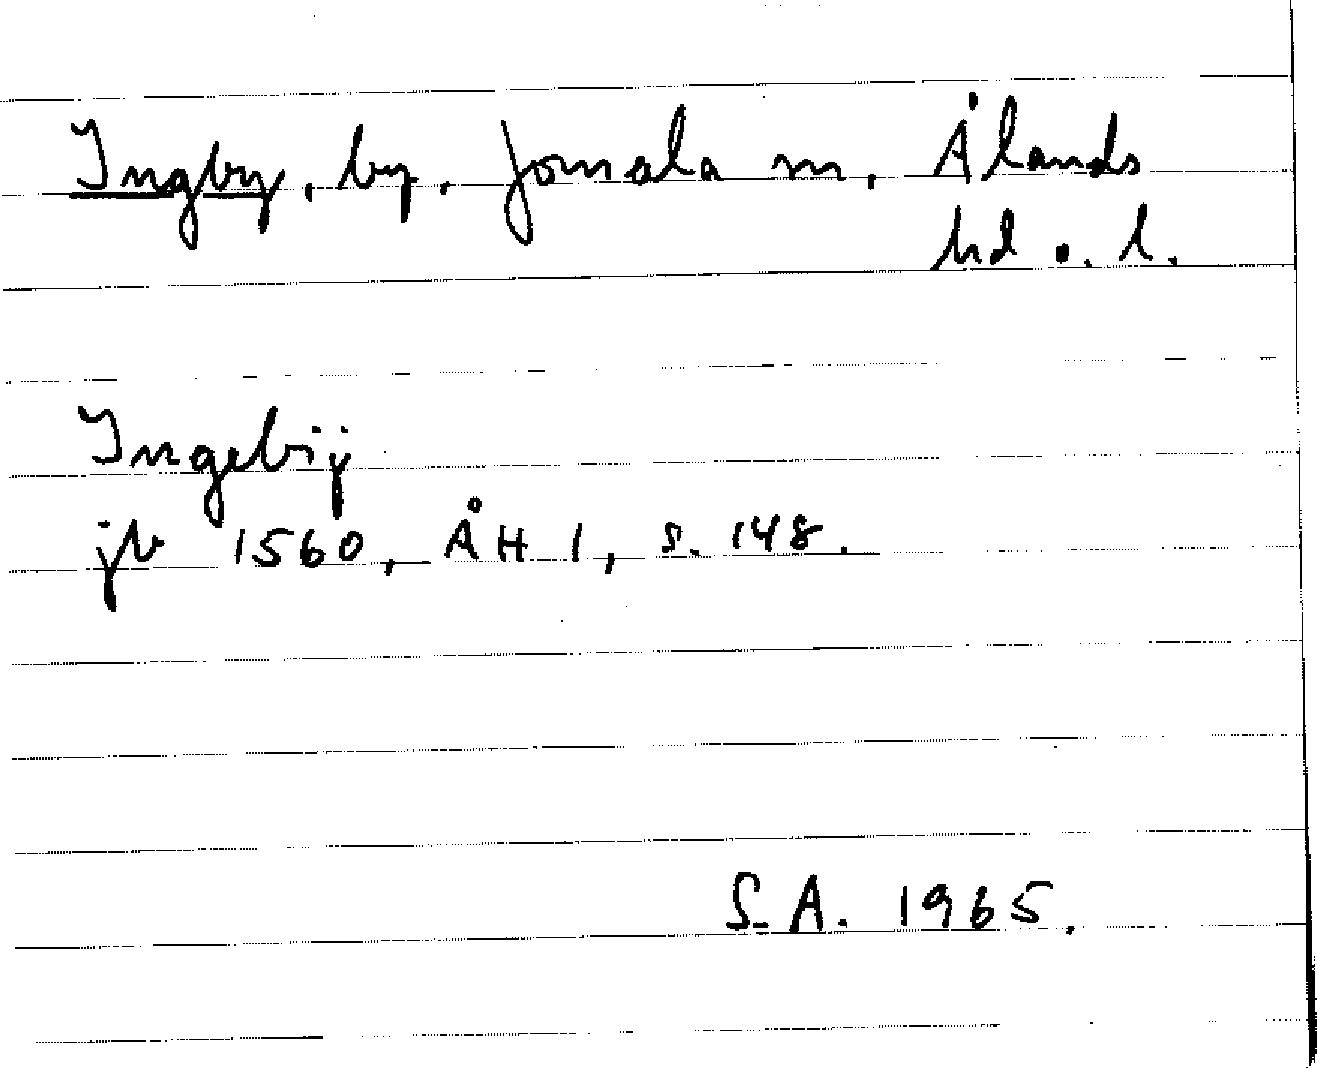 Ingby, by, Jomala m, Ålands
hd o. l.
Ingebÿ
jb 1560, ÅH 1, s. 148.
S.A. 1965.